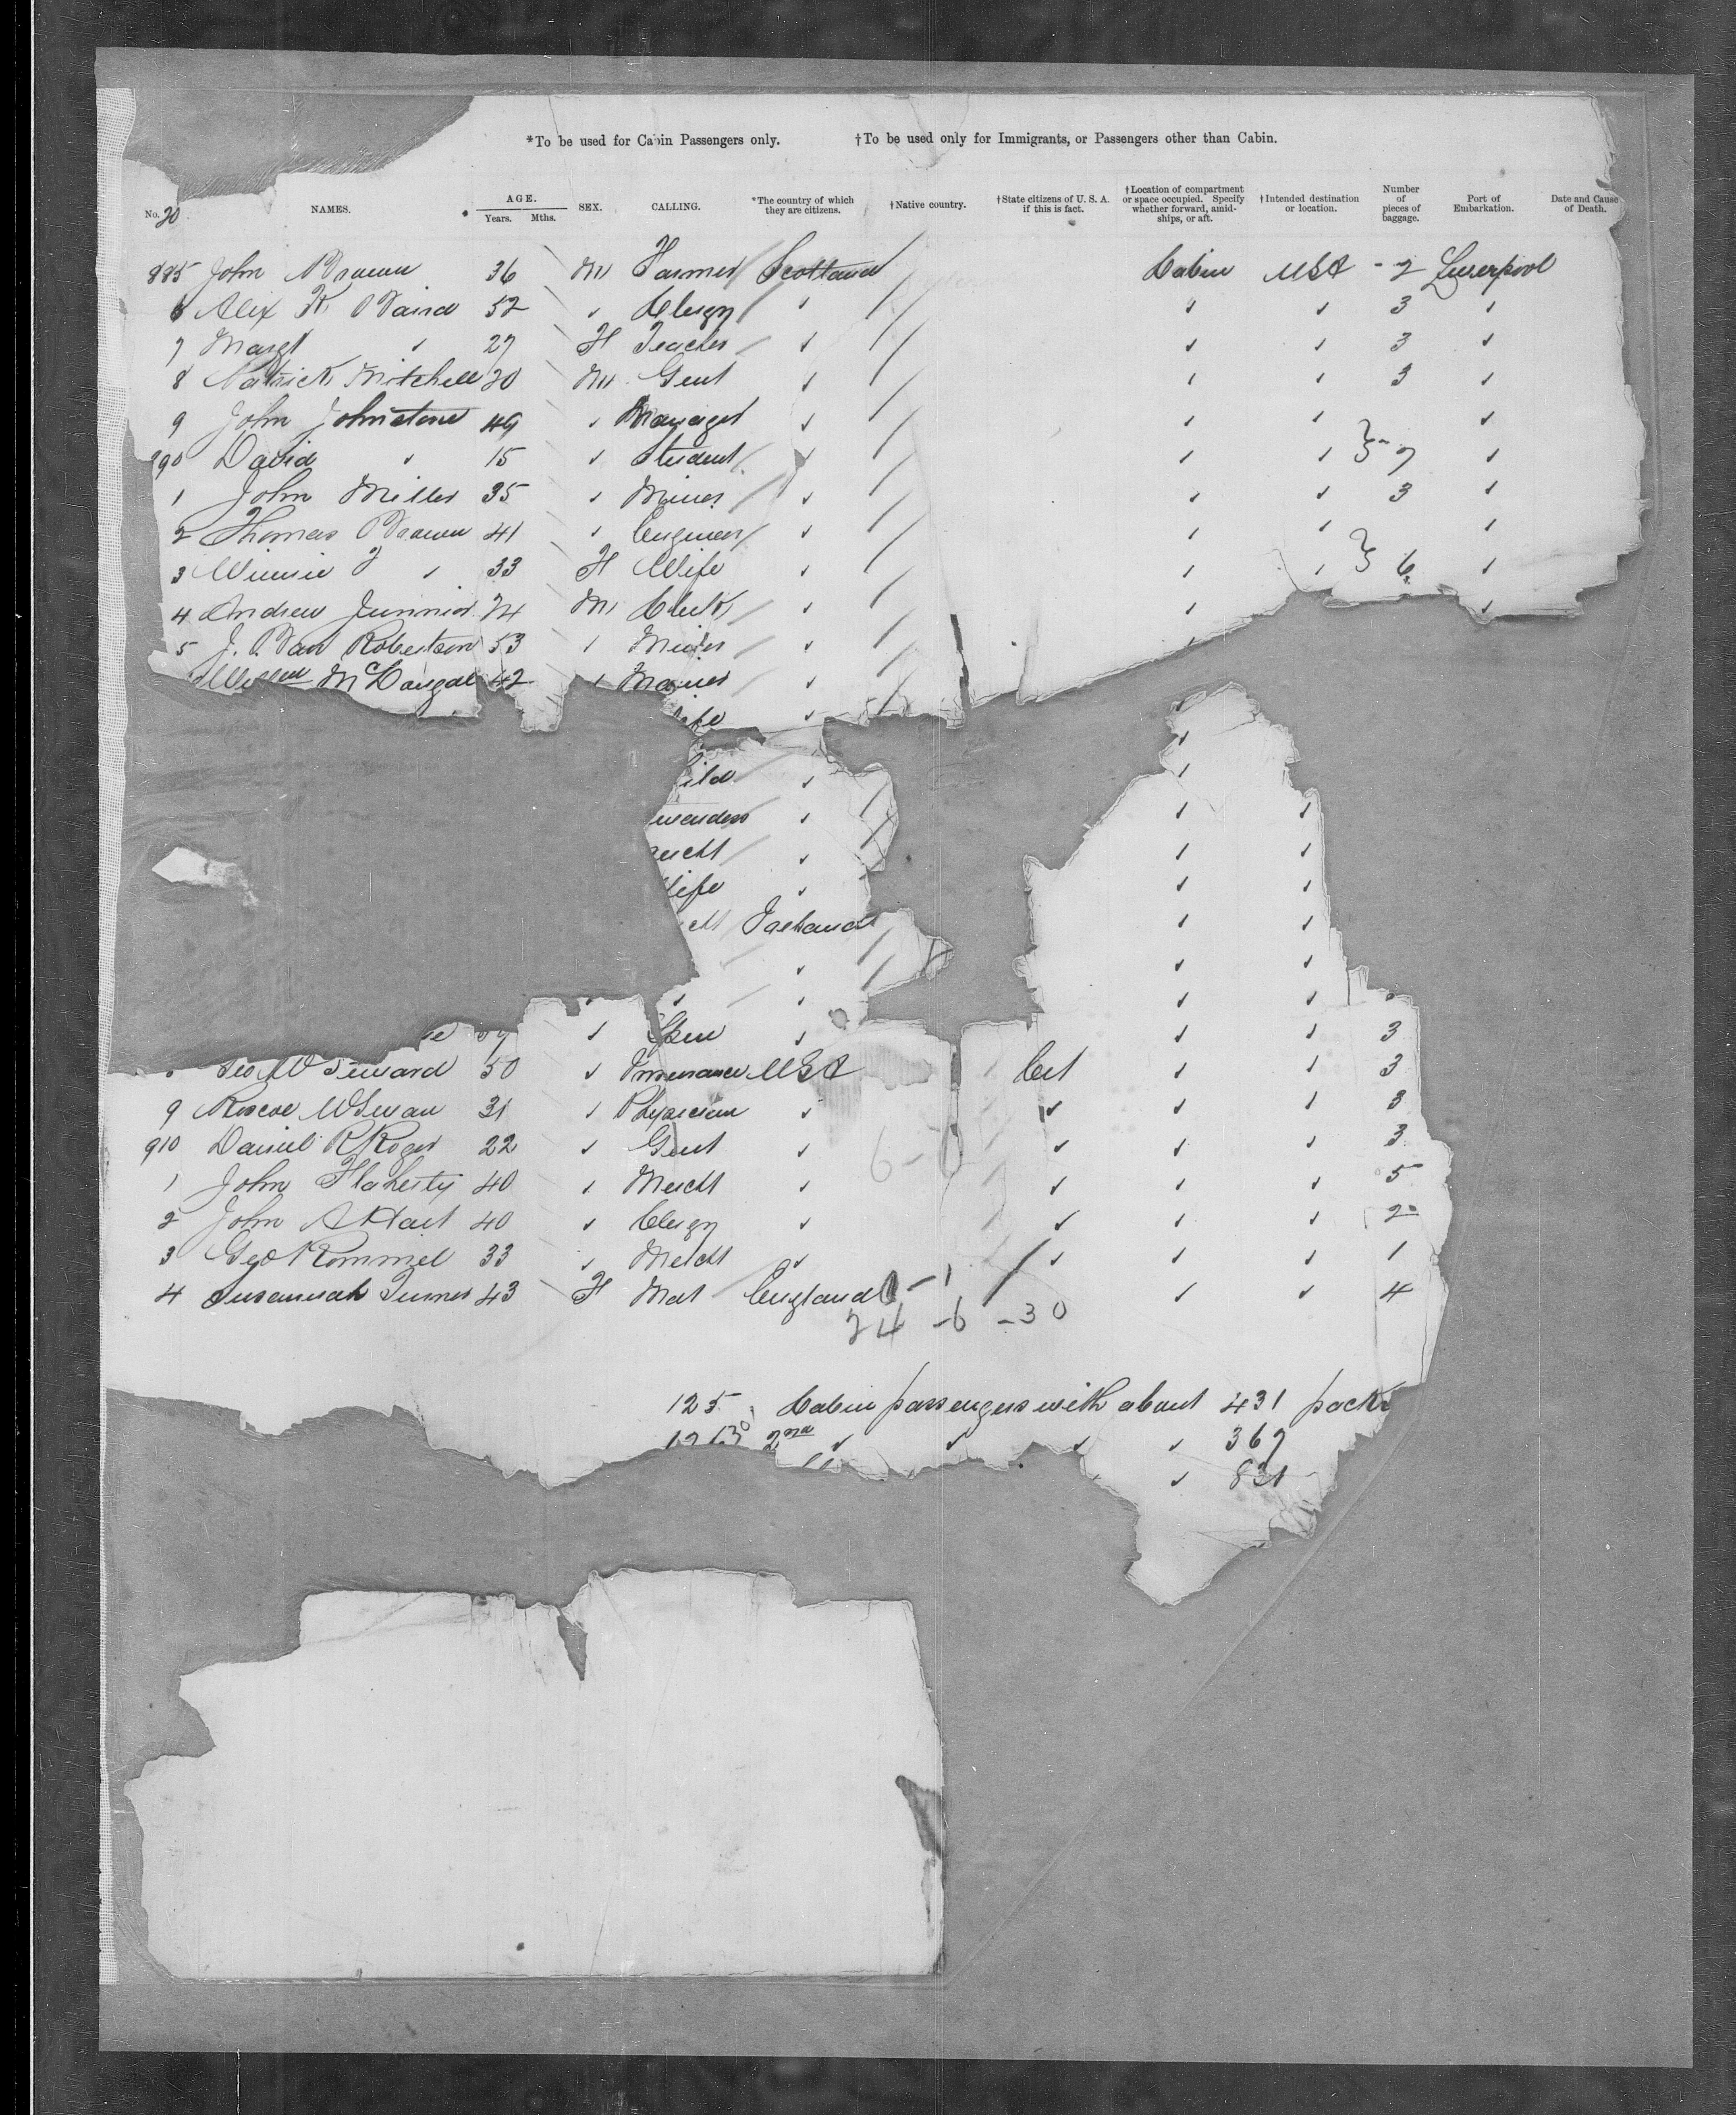 *To be used for Cabin Passengers only. †To be used only for Immigrants, or Passengers other than Cabin.
No. 20 NAMES. AGE. Years. Mths. SEX. CALLING. *The country of which they are citizens. †Native country. †State citizens of U. S. A. if this is fact. †Location of compartment or space occupied. Specify whether forward, amidships, or aft. †Intended destination or location. Number of pieces of baggage. Port of Embarkation. Date and Cause of Death.
885 John Brown 36 M Farmer Scotland Cabin USA - 2 Liverpool
6 Alex K Baird 52 ✓ Clergy ✓ ✓ ✓ 3 ✓
7 Margt ✓ 27 F Teacher ✓ ✓ ✓ 3 ✓
8 Patrick Mitchell 20 M Gent ✓ ✓ ✓ 3 ✓
9 John Johnstone 49 ✓ Manager ✓ ✓ ✓ ✓
890 David ✓ 15 ✓ Student ✓ ✓ ✓ } - 7 ✓
1 John Miller 35 ✓ Miner ✓ ✓ ✓ 3 ✓
2 Thomas Brown 41 ✓ Engineer ✓ ✓ ✓ ✓
3 Minnie F ✓ 33 F Wife ✓ ✓ ✓ } 6 ✓
4 Andrew 24 M Clerk ✓ ✓ ✓
5 J. Robertson 53 ✓ ✓ ✓
McDougal 42 ✓ ✓
ife ✓ ✓
✓
ild ✓ ✓
✓ ✓ ✓
ercht ✓ ✓ ✓
ife ✓ ✓ ✓
cht Ireland ✓ ✓
✓ ✓ ✓
✓ ✓ ✓ ✓ ✓
✓ ✓ ✓ ✓ 3
Geo W Seward 50 ✓ Insurance USA Cit ✓ ✓ 3
9 Roscoe W Swan 31 ✓ Physician ✓ ✓ ✓ ✓ 3
910 Daniel R Roger 22 ✓ Gent ✓ 6 - 0 ✓ ✓ ✓ 3
1 John Flaherty 40 ✓ Mercht ✓ ✓ ✓ ✓ 5
2 John A Hart 40 ✓ Clergy ✓ ✓ ✓ ✓ 2
3 Geo Rommel 33 ✓ Mercht ✓ ✓ ✓ ✓ 1
4 Susannah Turner 43 F Mat England 0 - 1 ✓ ✓ 4
24 - 6 - 30
125 Cabin passengers with about 431 packs
2nd ✓ ✓ ✓ ✓ 367
✓ 831